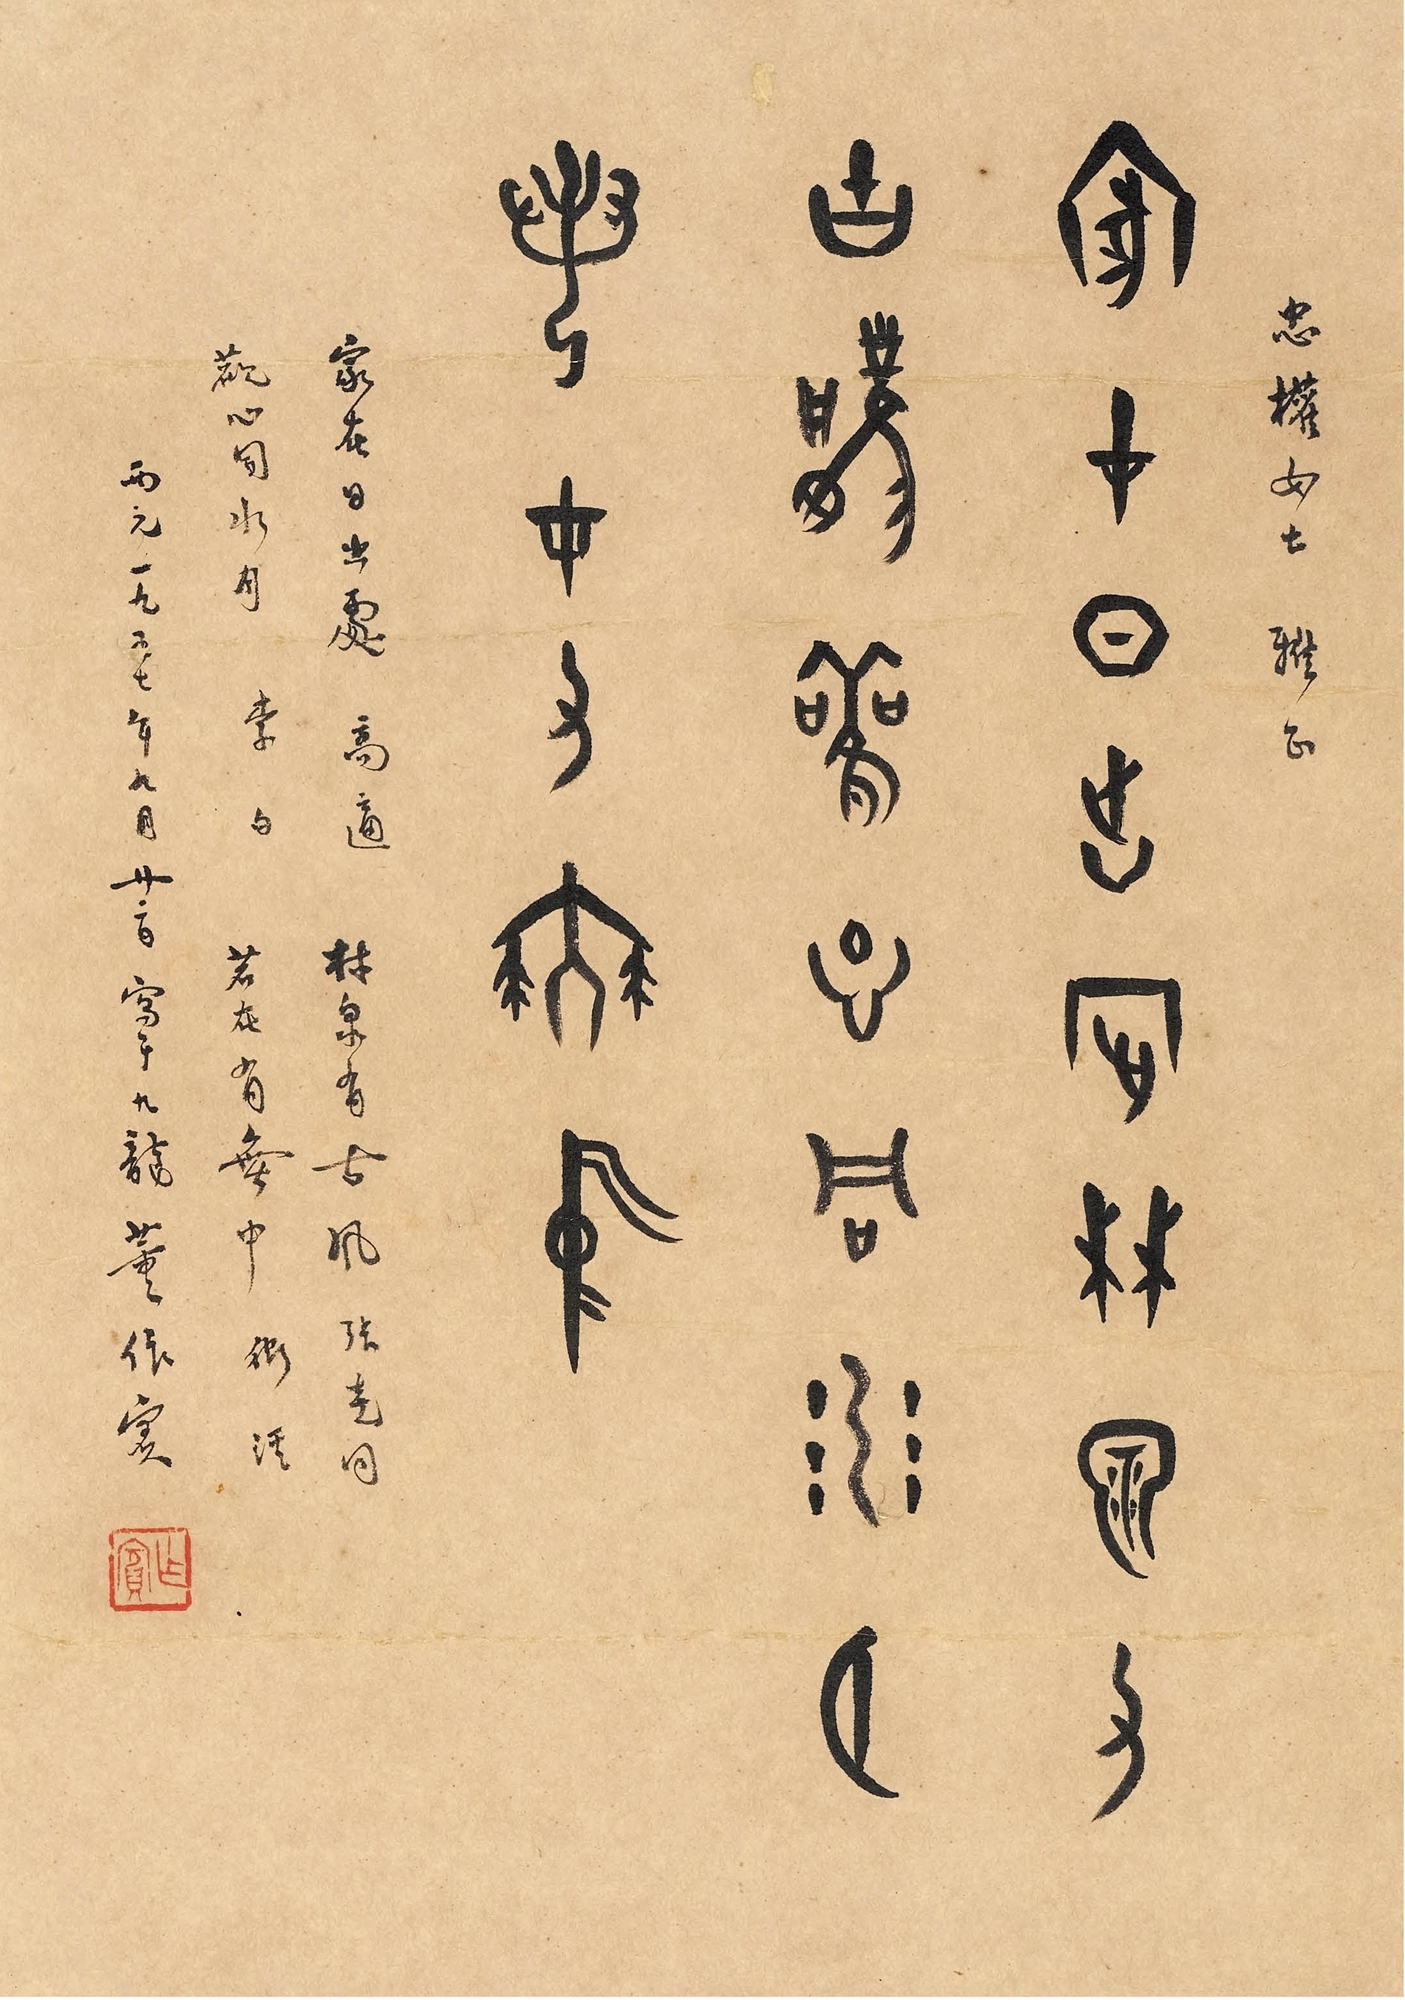 忠權女士 雅正
家在日出處林泉有
古風觀心同水月
若在有無中
家在日出處 高適 林泉有古風
觀心同水月 李白 若在有無中
西元一九五七年九月廿二日寫于九龍 董作賓
作賓